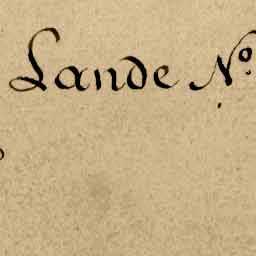 Lande Nº.